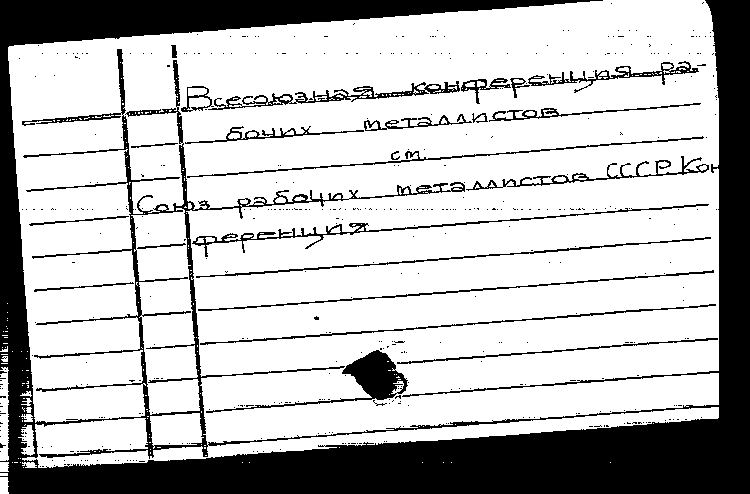 Всесоюзная конференция ра-
бочих металлистов
см.
Союз рабочих металлистов СССР. Кон
ференция